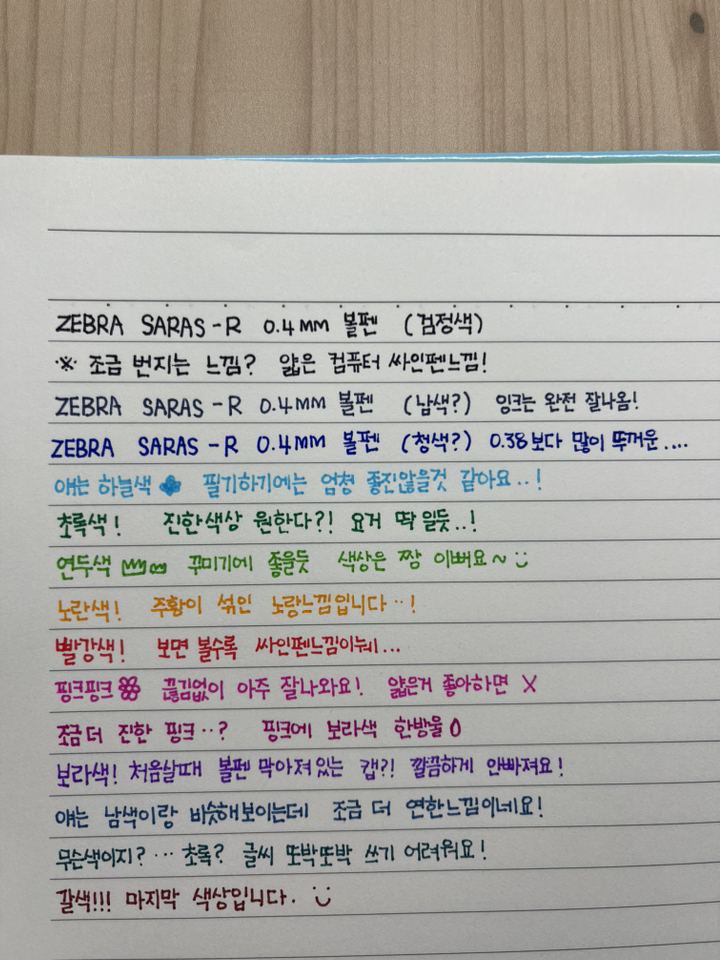 ZEBRA SARAS-R 0.4mm 볼펜 (검정색)
※ 조금 번지는 느낌? 얇은 컴퓨터 싸인펜느낌!
ZEBRA SARAS-R 0.4mm 볼펜 (남색?) 잉크는 완전 잘나옴!
ZEBRA SARAS-R 0.4mm 볼펜 (청색?) 0.38보다 많이 뚜꺼운....
얘는 하늘색 필기하기에는 엄청 좋진않을것 같아요..!
초록색! 진한색상 원한다?! 요거 딱 일듯..!
연두색 꾸미기에 좋을듯 색상은 짱 이뻐요~
노란색! 주황이 섞인 노랑느낌입니다..!
빨강색! 보면 볼수록 싸인펜느낌이눼...
핑크핑크 끊김없이 아주 잘나와요! 얇은거 좋아하면 X
조금더 진한 핑크..? 핑크에 보라색 한방울
보라색! 처음살때 볼펜 막아져있는 캡?! 깔끔하게 안빠져요!
얘는 남색이랑 비슷해보이는데 조금 더 연한느낌이네요!
무슨색이지?... 초록? 글씨 또박또박 쓰기 어려워요!
갈색!!! 마지막 색상입니다.